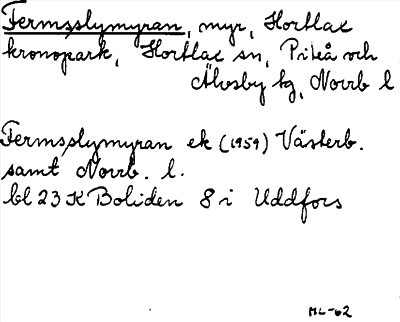 Fermsslymyran, myr, Hortlax
kronopark, Hortlax sn, Piteå och
Älvsby tg, Norrb l
Fermsslymyran ek (1959) Västerb.
samt Norrb. l.
bl 23 K Boliden 8 i Uddfors
ML-62